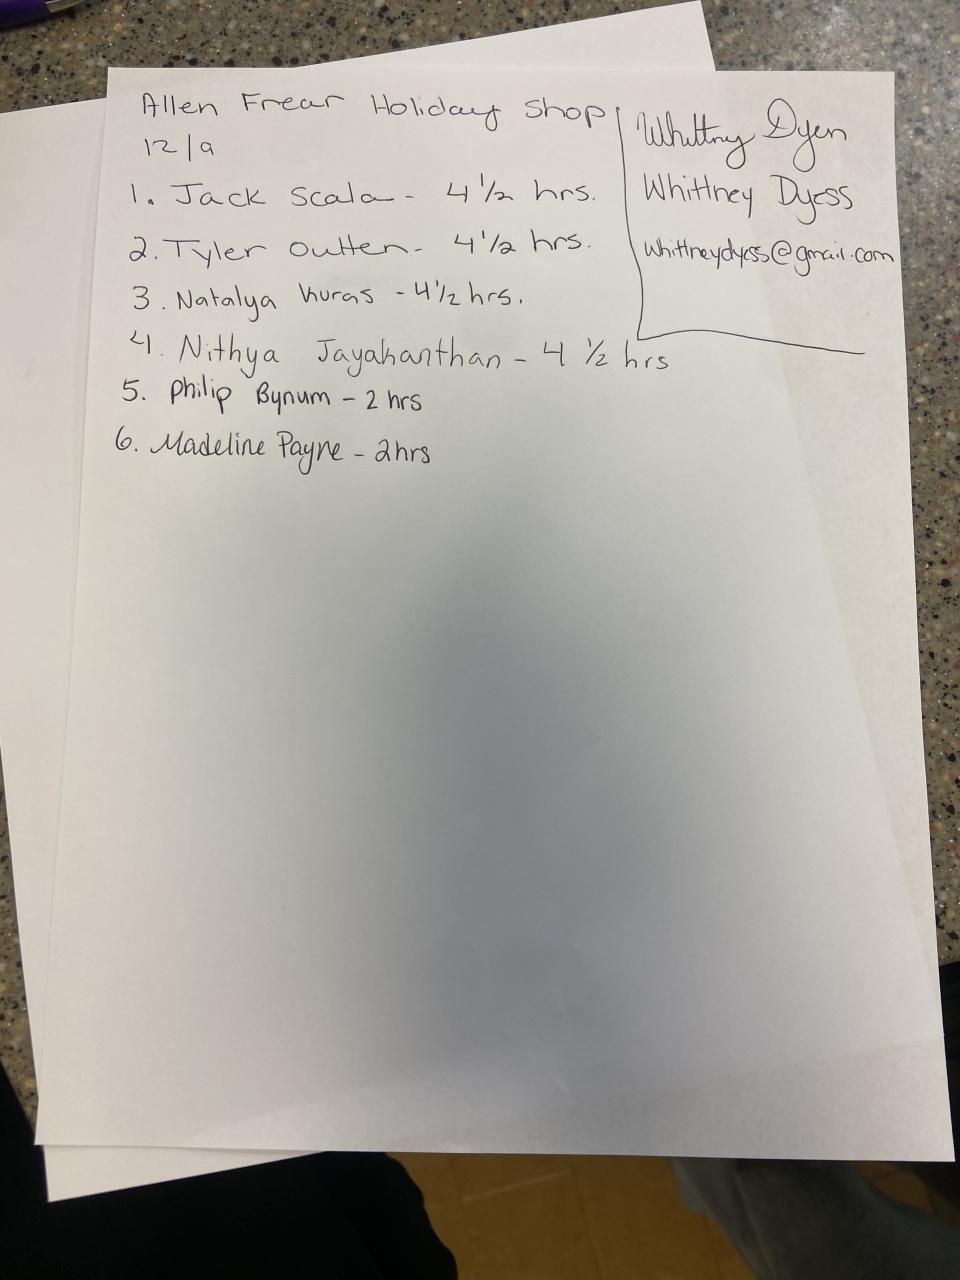 Allen Frear Holiday Shop
12/9
1. Jack Scala - 4 1/2 hrs.
2. Tyler Outten - 4 1/2 hrs.
3. Natalya Kuras - 4 1/2 hrs.
4. Nithya Jayakanthan - 4 1/2 hrs
5. Philip Bynum - 2 hrs
6. Madeline Payne - 2hrs
Whittney Dyess
Whittney Dyess
whittneydyess@gmail.com